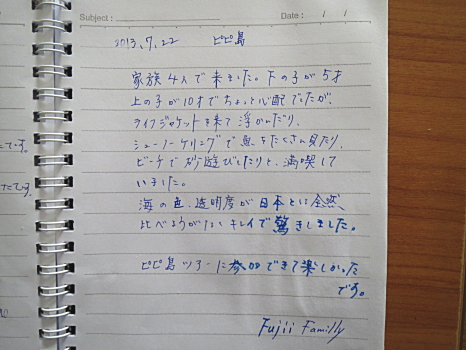 Subject :
Date : / /
2013.7.22 ピピ島
家族4人で来ました。下の子が5才
上の子が10才でちょっと心配でしたが、
ライフジャケットを来て浮かんだり、
シューノーケリングで魚をたくさん見たり、
ビーチで砂遊びしたりと、満喫して
いました。
海の色、透明度が日本とは全然、
比べようがないキレイで驚きしました。
ピピ島ツアーに参加できて楽しかった
です。
Fujii Familly
たです。